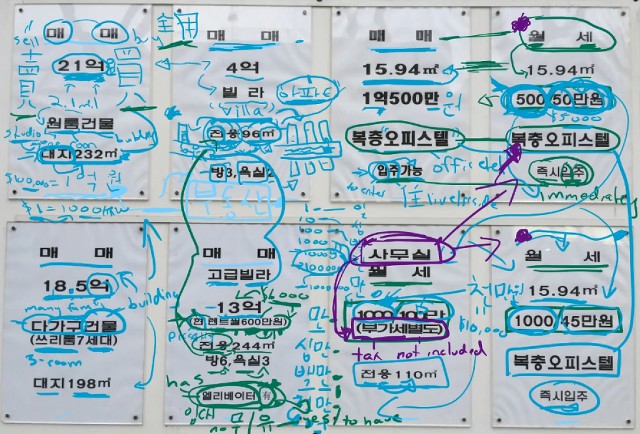 매 매
21억
원룸건물
대지232㎡
sell
buy
2.1 mil
studio
building
$100,000 = 1억원
$1 = 1000KRW
매 매
4억
빌라
(villa)
아파트
전용96㎡
방3, 욕실2
부동산
매 매
15.94㎡
1억500만원
복층오피스텔
입주가능
officetel
to enter
住 live/reside
월 세
15.94㎡
500 50만원
$5000
복층오피스텔
즉시입주
immediately
매 매
18.5억
many family
building
다가구건물
(쓰리룸7세대)
3-room
대지198㎡
매 매
고급빌라
13억
(현 렌트월600만원)
전용244㎡
방6, 욕실3
has
엘리베이터 有
있다
무 유
no
yes? to have
만
십만
백만
천만
사무실
월 세
1000 100만
(부가세별도)
tax not included
전용110㎡
월 세
15.94㎡
천만원
$10,000
1000 45만원
복층오피스텔
즉시입주